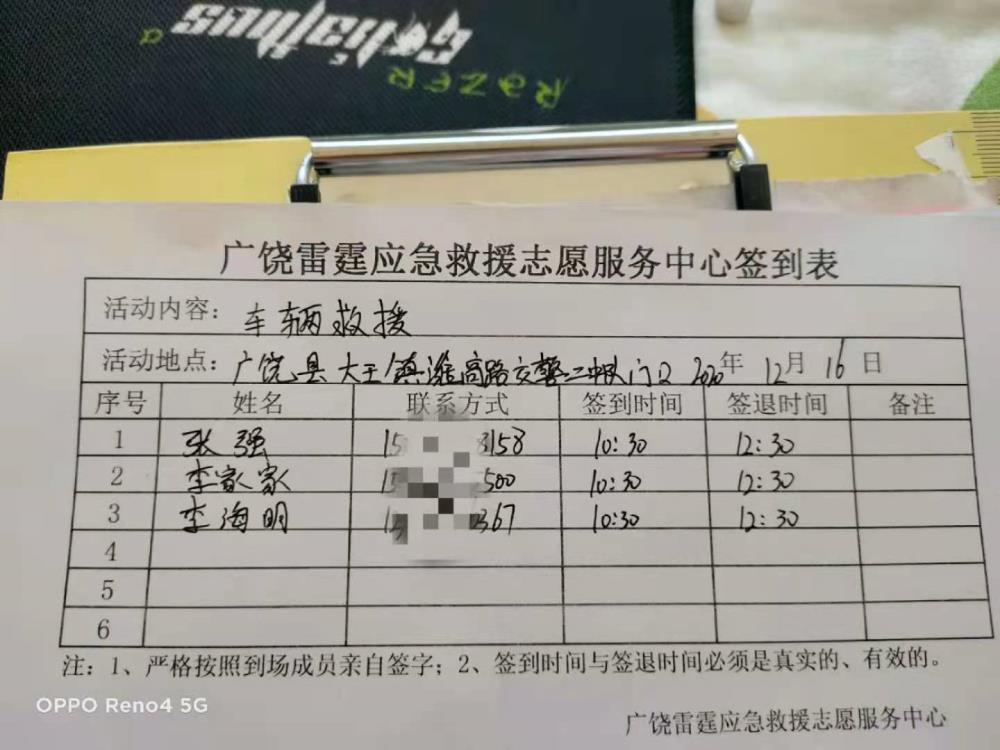 Goliathus
RAZER
广饶雷霆应急救援志愿服务中心签到表
活动内容: 车辆救援
活动地点: 广饶县大王镇潍高路交警二中队门口 2020年 12月 16日
序号 姓名 联系方式 签到时间 签退时间 备注
1 张强 15 8158 10:30 12:30
2 李家家 15 500 10:30 12:30
3 李海明 367 10:30 12:30
4
5
6
注: 1、严格按照到场成员亲自签字; 2、签到时间与签退时间必须是真实的、有效的。
OPPO Reno4 5G
广饶雷霆应急救援志愿服务中心